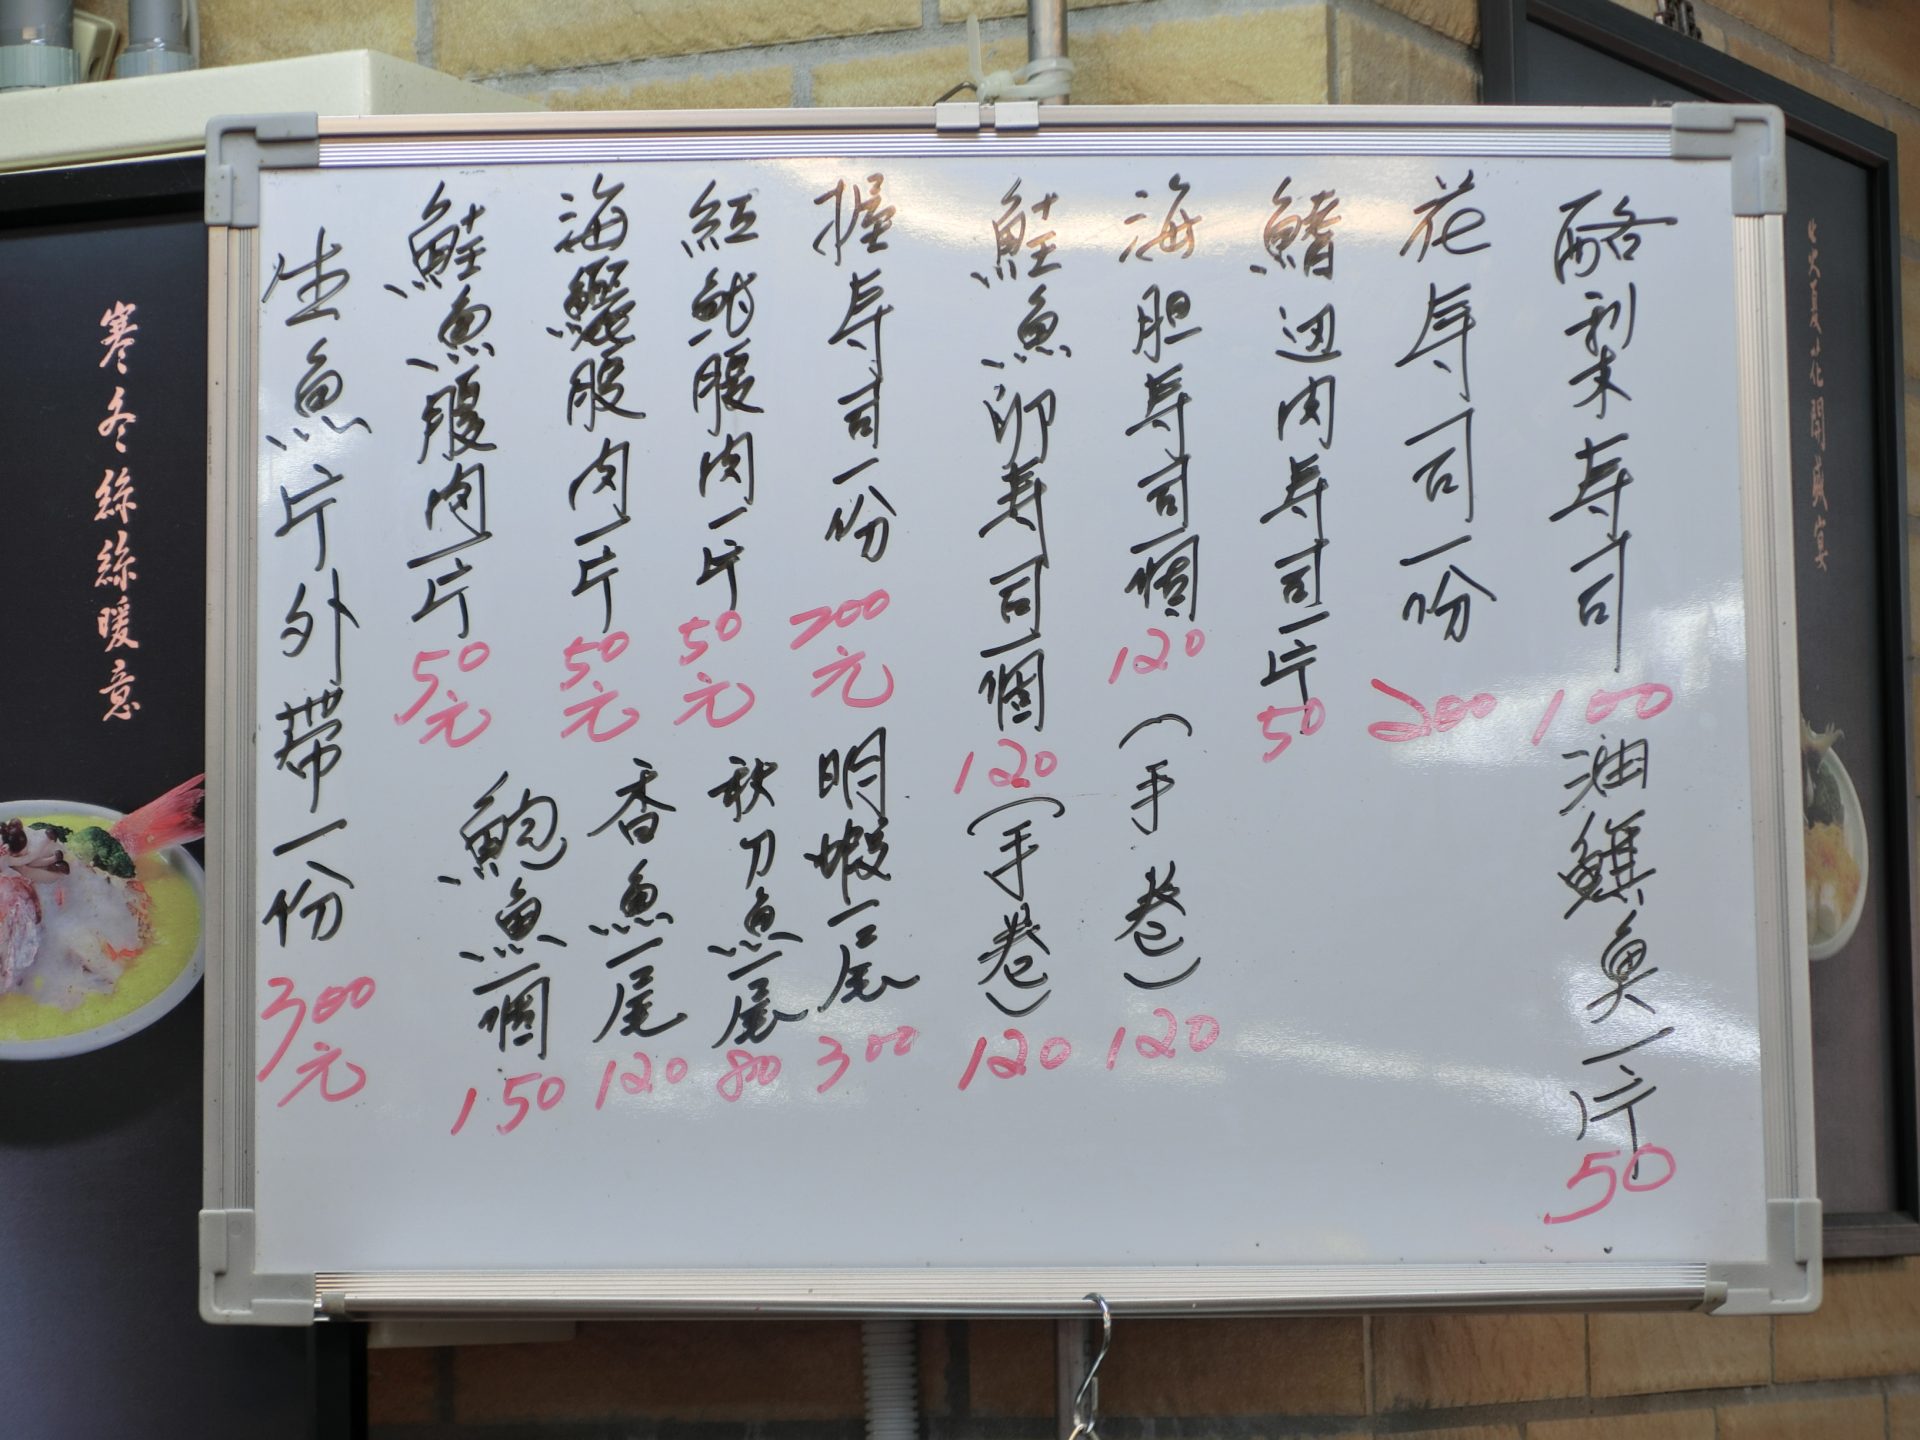 花開盛宴
酪梨寿司 100 油 魚一片 50
花寿司一份 200
鰭边肉寿司一片 50
海胆寿司一個 120 (手卷) 120
鮭魚卵寿司一個 120 (手卷) 120
握寿司一份 200元 明蝦一尾 300
紅魽腹肉一片 50元 秋刀魚一尾 80
海鱺腹肉一片 50元 香魚一尾 120
鮭魚腹肉一片 50元 鮑魚一個 150
生魚片外帶一份 300元
寒冬絲絲暖意